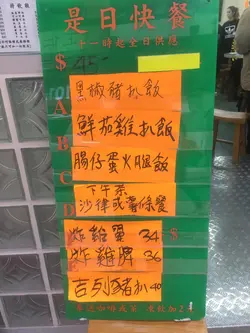 是日快餐
十一時起全日供應
$
A 黑椒豬扒飯
B 鮮茄雞扒飯
C 腸仔蛋火腿飯
下午茶
D 沙律或薯條餐
炸雞翼 34 $
炸雞髀 36
吉列豬扒 40
凍飲加2元